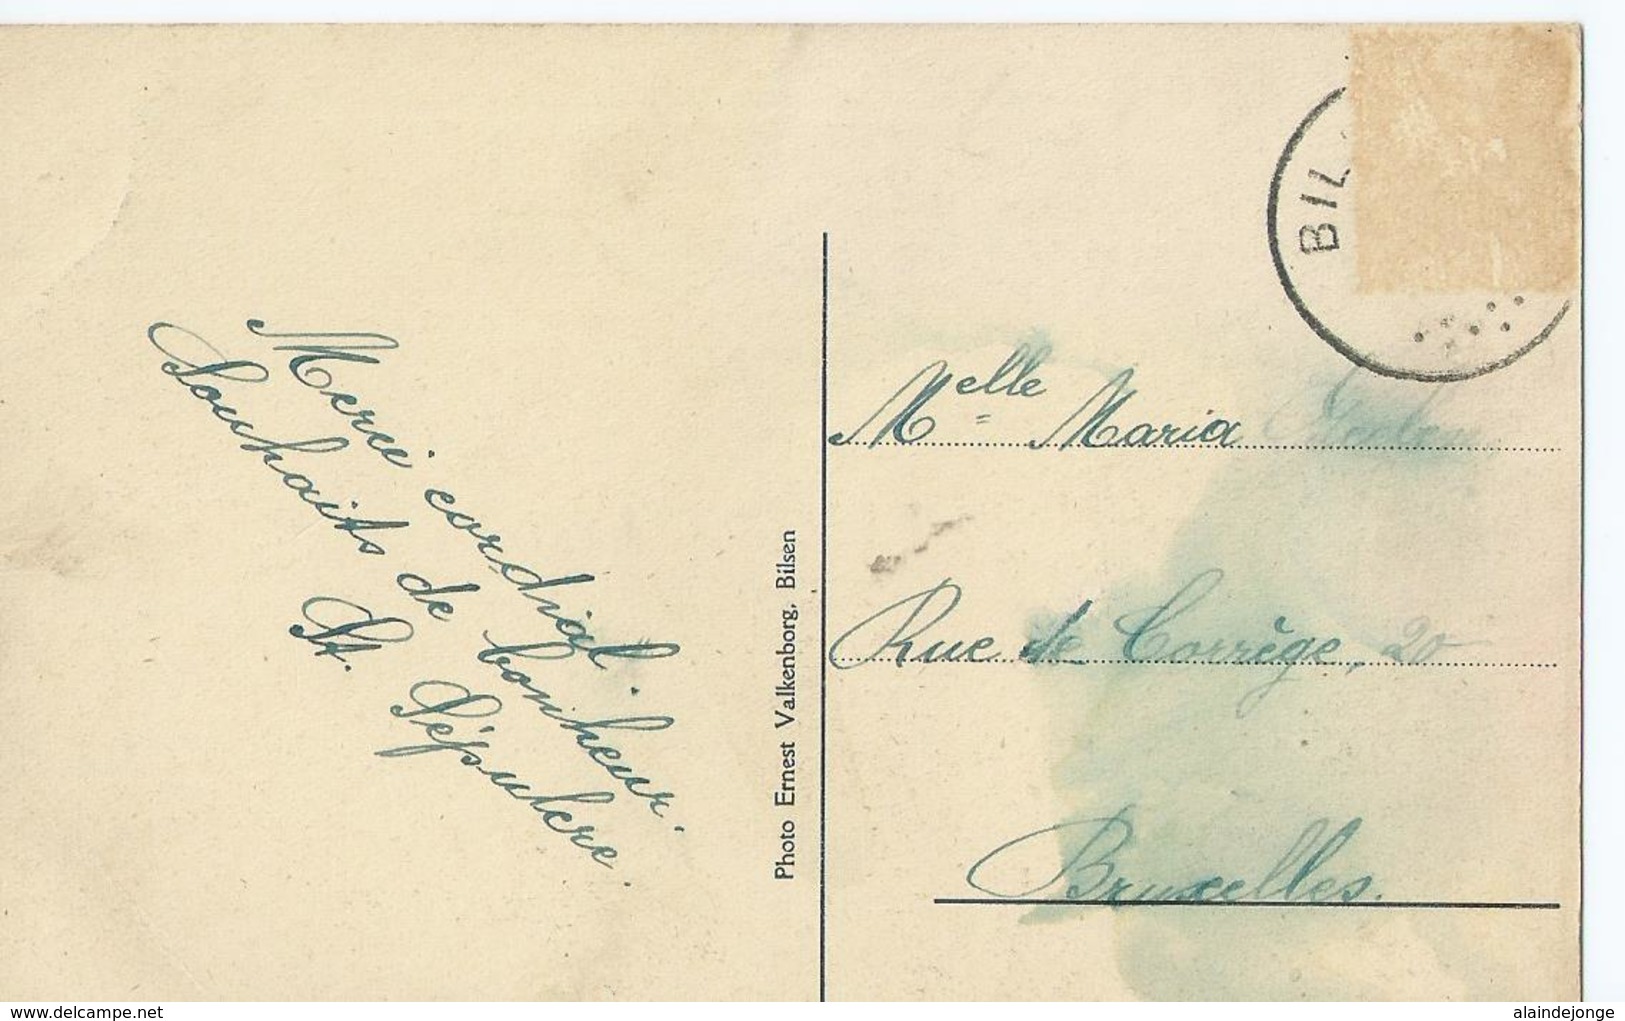 Merci cordial.
Souhaits de bonheur.
St. Sépulcre
Photo Ernest Valkenborg, Bilsen
BIL
Melle Maria
Rue de Corrège, 20
Bruxelles.
www.delcampe.net
alaindejonge